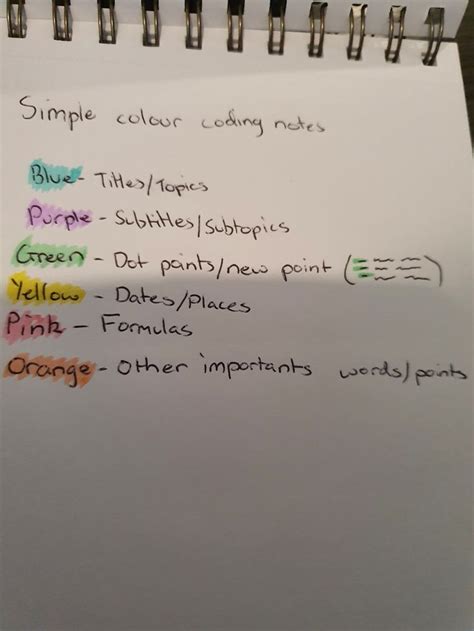 Simple colour coding notes
Blue - Titles/Topics
Purple - Subtitles/Subtopics
Green - Dot points/new point ( )
Yellow - Dates/Places
Pink - Formulas
Orange - Other importants words/points